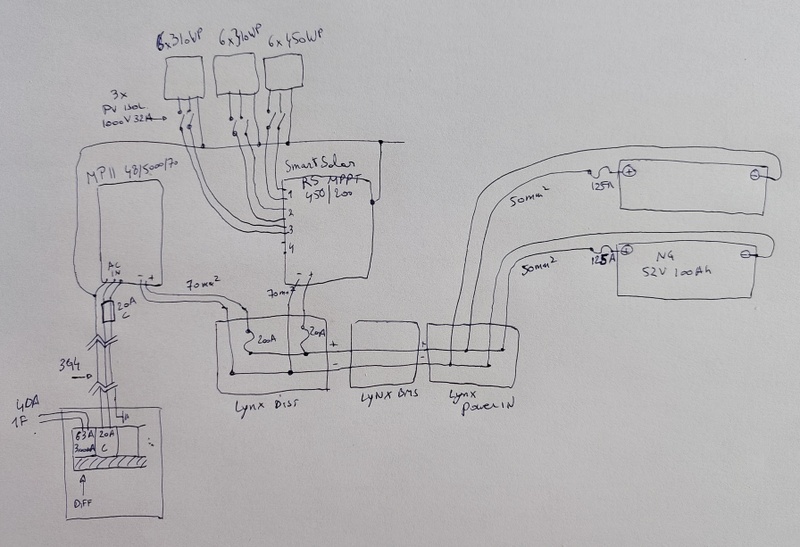 6x310WP
6x310WP
6x450WP
3x
PV ISOL.
1000V 32A
MPII 48/5000/70
SmartSolar
RS MPPT
450/200
1
2
3
4
AC
IN
- +
20A
C
70mm²
70mm²
- +
200A
200A
+
-
+
-
Lynx Dist
LYNX BMS
Lynx
Power IN
50mm²
50mm²
125A
125A
+
-
+
-
NG
52V 100Ah
3G4
40A
1F
63A
300mA
20A
C
DIFF